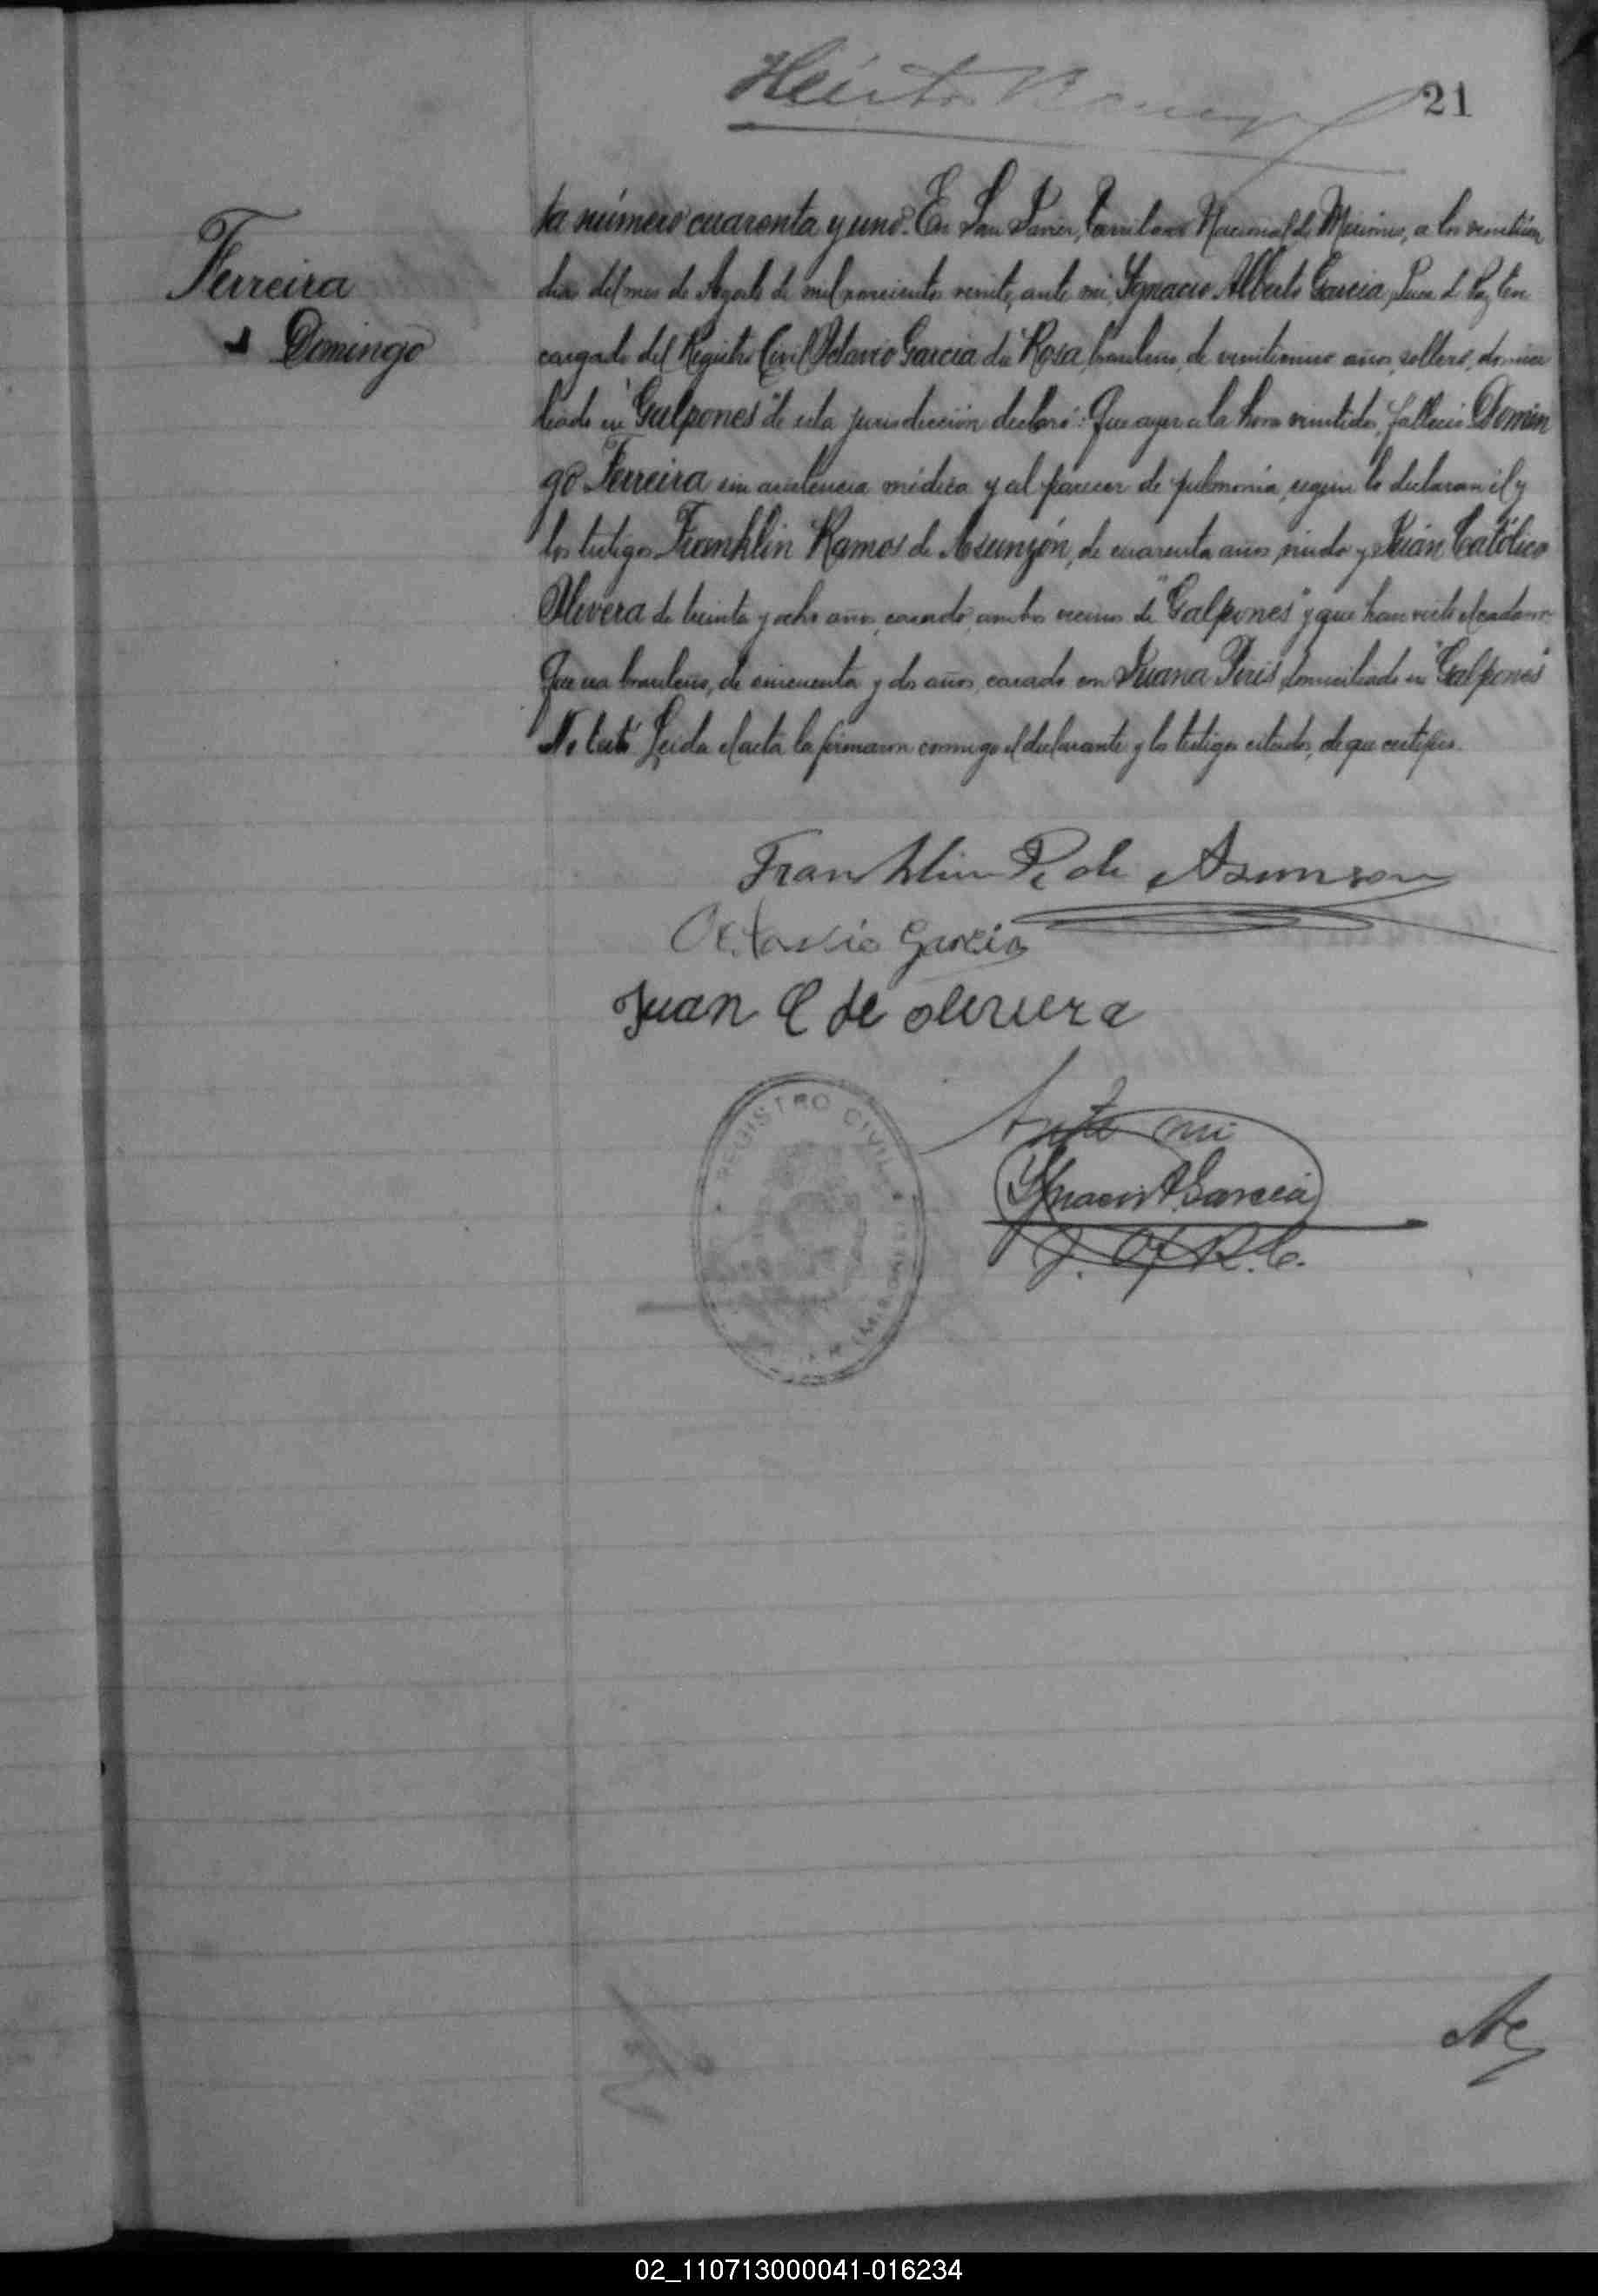 21
Ferreira
Domingo
ta número cuarenta y uno. En San Javier, Territorio Nacional de Misiones, a los veintiún
dias del mes de Agosto de mil novecientos veinte, ante mi, Ygnacio Alberto Garcia, Juez de Paz En
cargado del Registro Civil Octavio Garcia da Rosa, brasilero, de veintinueve años, soltero, domici
liado en "Galpones" de esta jurisdicción declaró: Que ayer a la hora veintidos, falleció Domin
go Ferreira sin asistencia médica y al parecer de pulmonia, segun lo declaran él y
los testigos Franklin Ramos de Asunzón, de cuarenta años, viudo y Juan Católico
Olivera de treinta y ocho años, casado, ambos vecinos de "Galpones" y que han visto el cadaver
Que era brasilero, de cincuenta y dos años, casado con Juana Piris, domiciliado en "Galpones"
No testó. Leida el acta la firmaron conmigo el declarante y los testigos citados, de que certifico.
Franklin R de Asumson
Octavio Garcia
Juan C de oliveira
REGISTRO CIVIL
Ante mi
Ygnacio A. Garcia
J. Of R. C.
02_110713000041-016234